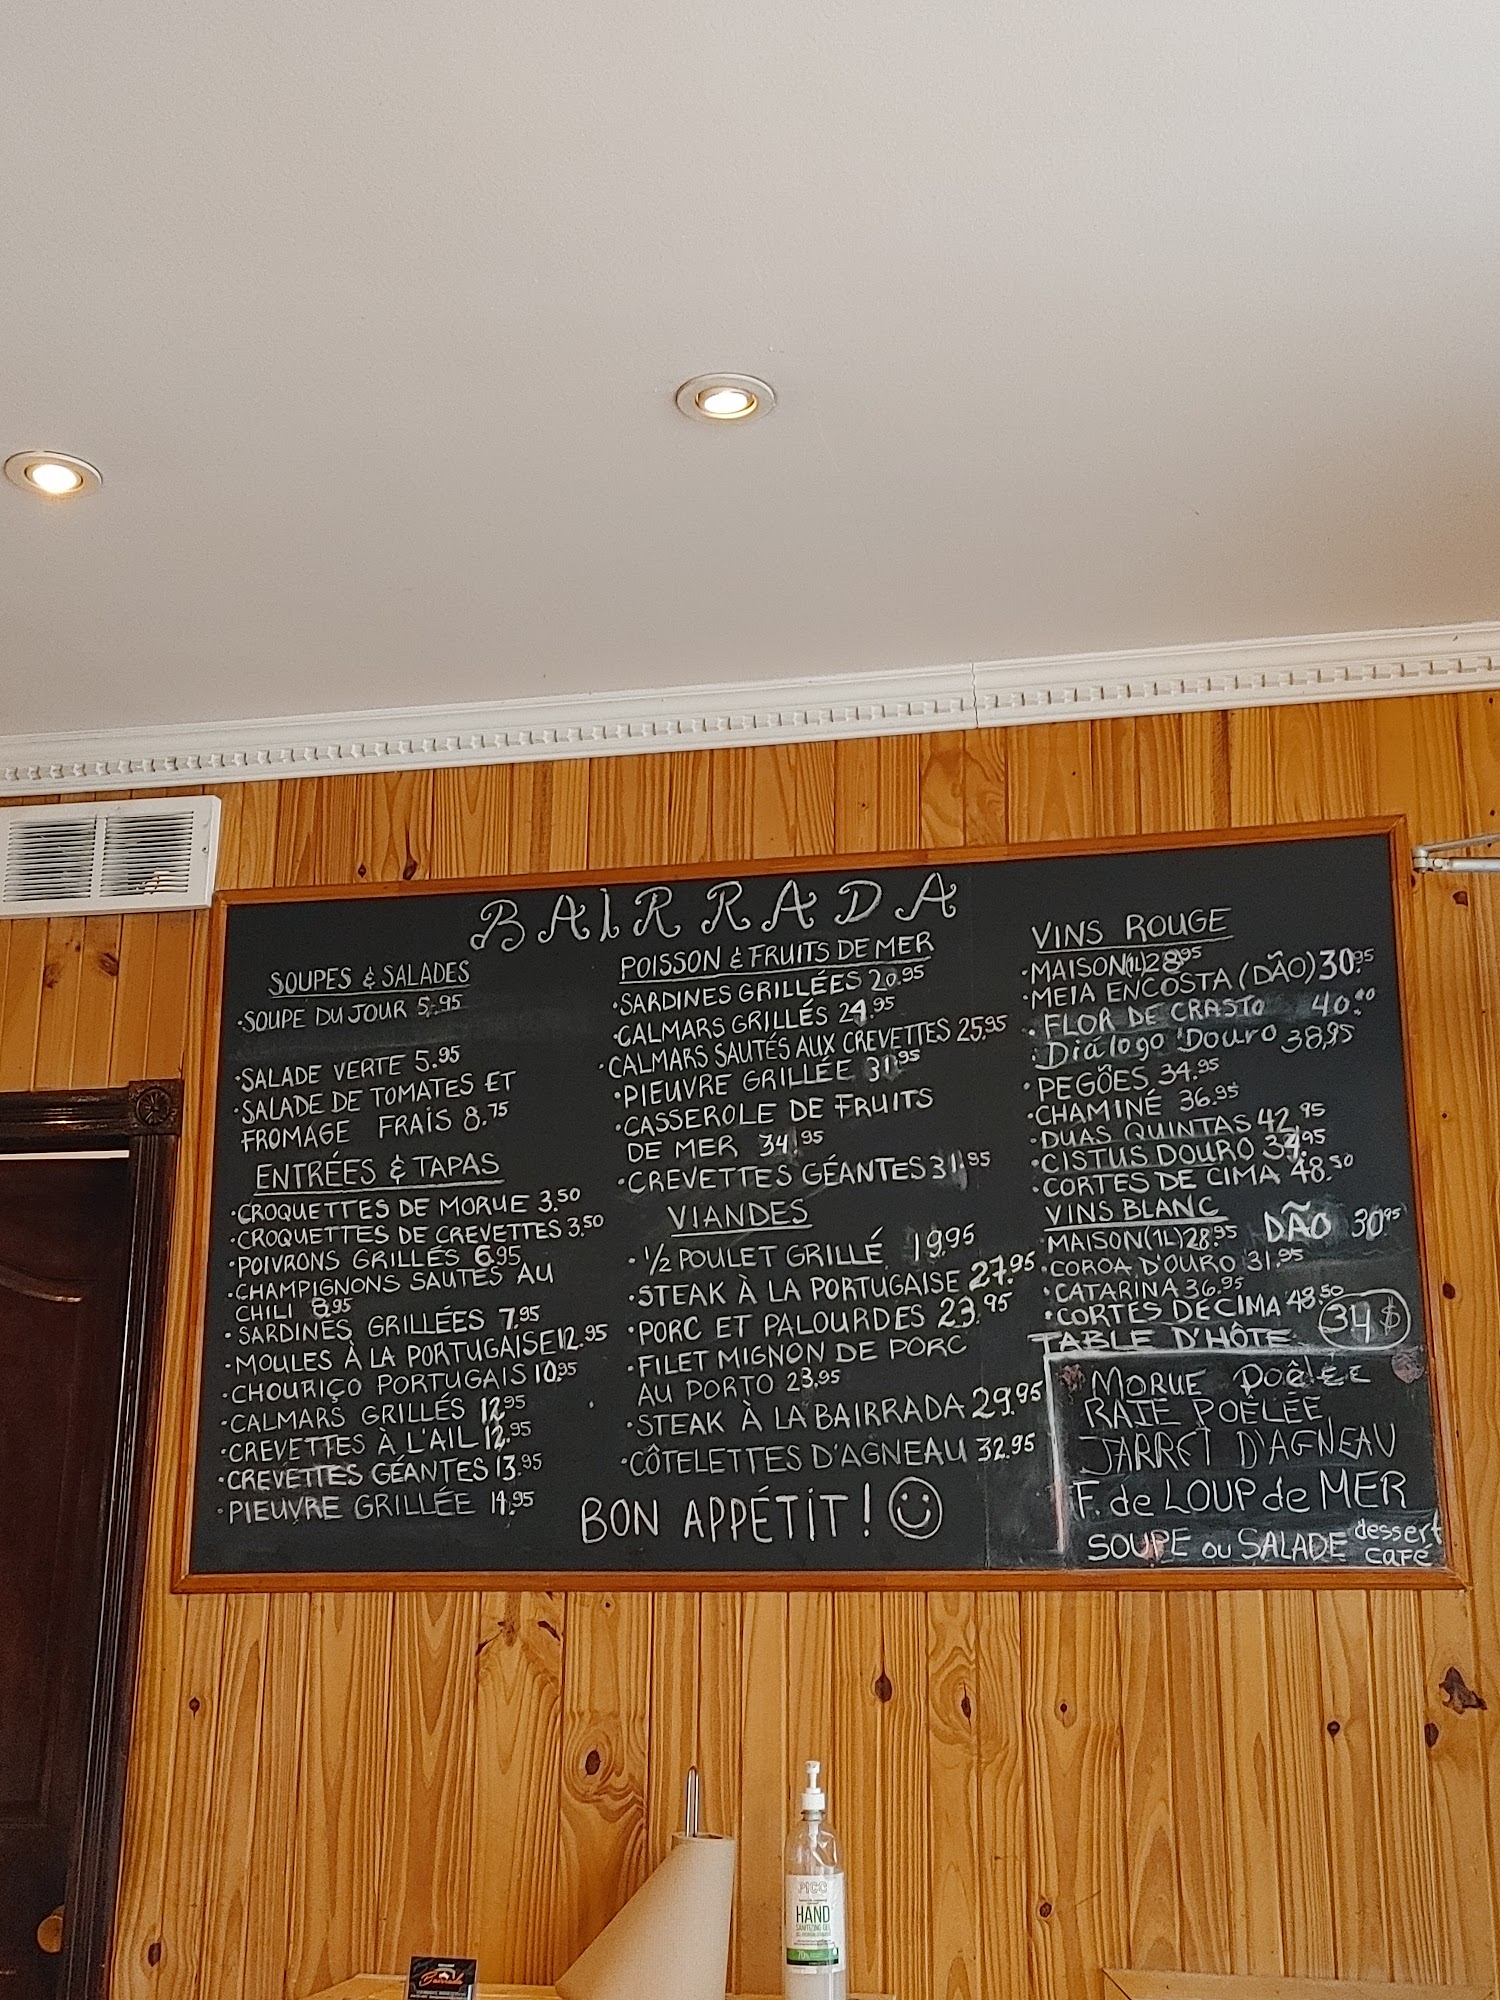 BAIRRADA
SOUPES & SALADES
·SOUPE DU JOUR 5.95
·SALADE VERTE 5.95
·SALADE DE TOMATES ET
FROMAGE FRAIS 8.75
ENTRÉES & TAPAS
·CROQUETTES DE MORUE 3.50
·CROQUETTES DE CREVETTES 3.50
·POIVRONS GRILLÉS 6.95
·CHAMPIGNONS SAUTÉS AU
CHILI 8.95
·SARDINES GRILLÉES 7.95
·MOULES À LA PORTUGAISE 12.95
·CHOURIÇO PORTUGAIS 10.95
·CALMARS GRILLÉS 12.95
·CREVETTES À L'AIL 12.95
·CREVETTES GÉANTES 13.95
·PIEUVRE GRILLÉE 14.95
POISSON & FRUITS DE MER
·SARDINES GRILLÉES 20.95
·CALMARS GRILLÉS 24.95
·CALMARS SAUTÉS AUX CREVETTES 25.95
·PIEUVRE GRILLÉE 31.95
·CASSEROLE DE FRUITS
DE MER 34.95
·CREVETTES GÉANTES 31.95
VIANDES
·½ POULET GRILLÉ 19.95
·STEAK À LA PORTUGAISE 27.95
·PORC ET PALOURDES 23.95
·FILET MIGNON DE PORC
AU PORTO 23.95
·STEAK À LA BAIRRADA 29.95
·CÔTELETTES D'AGNEAU 32.95
BON APPÉTIT!
VINS ROUGE
·MAISON(1L) 28.95
·MEIA ENCOSTA (DÃO) 30.95
·FLOR DE CRASTO 40.00
·Diálogo Douro 38,95
·PEGÕES 34.95
·CHAMINÉ 36.95
·DUAS QUINTAS 42.95
·CISTUS DOURO 34.95
·CORTES DE CIMA 48.50
VINS BLANC
·MAISON(1L) 28.95 DÃO 30.95
·COROA D'OURO 31.95
·CATARINA 36.95
·CORTES DE CIMA 48.50
TABLE D'HÔTE 34$
MORUE POÊLÉE
RAIE POÊLÉE
JARRET D'AGNEAU
F. de LOUP de MER
SOUPE ou SALADE dessert
café
PICC
HAND
SANITIZING GEL
70%
Bairrada